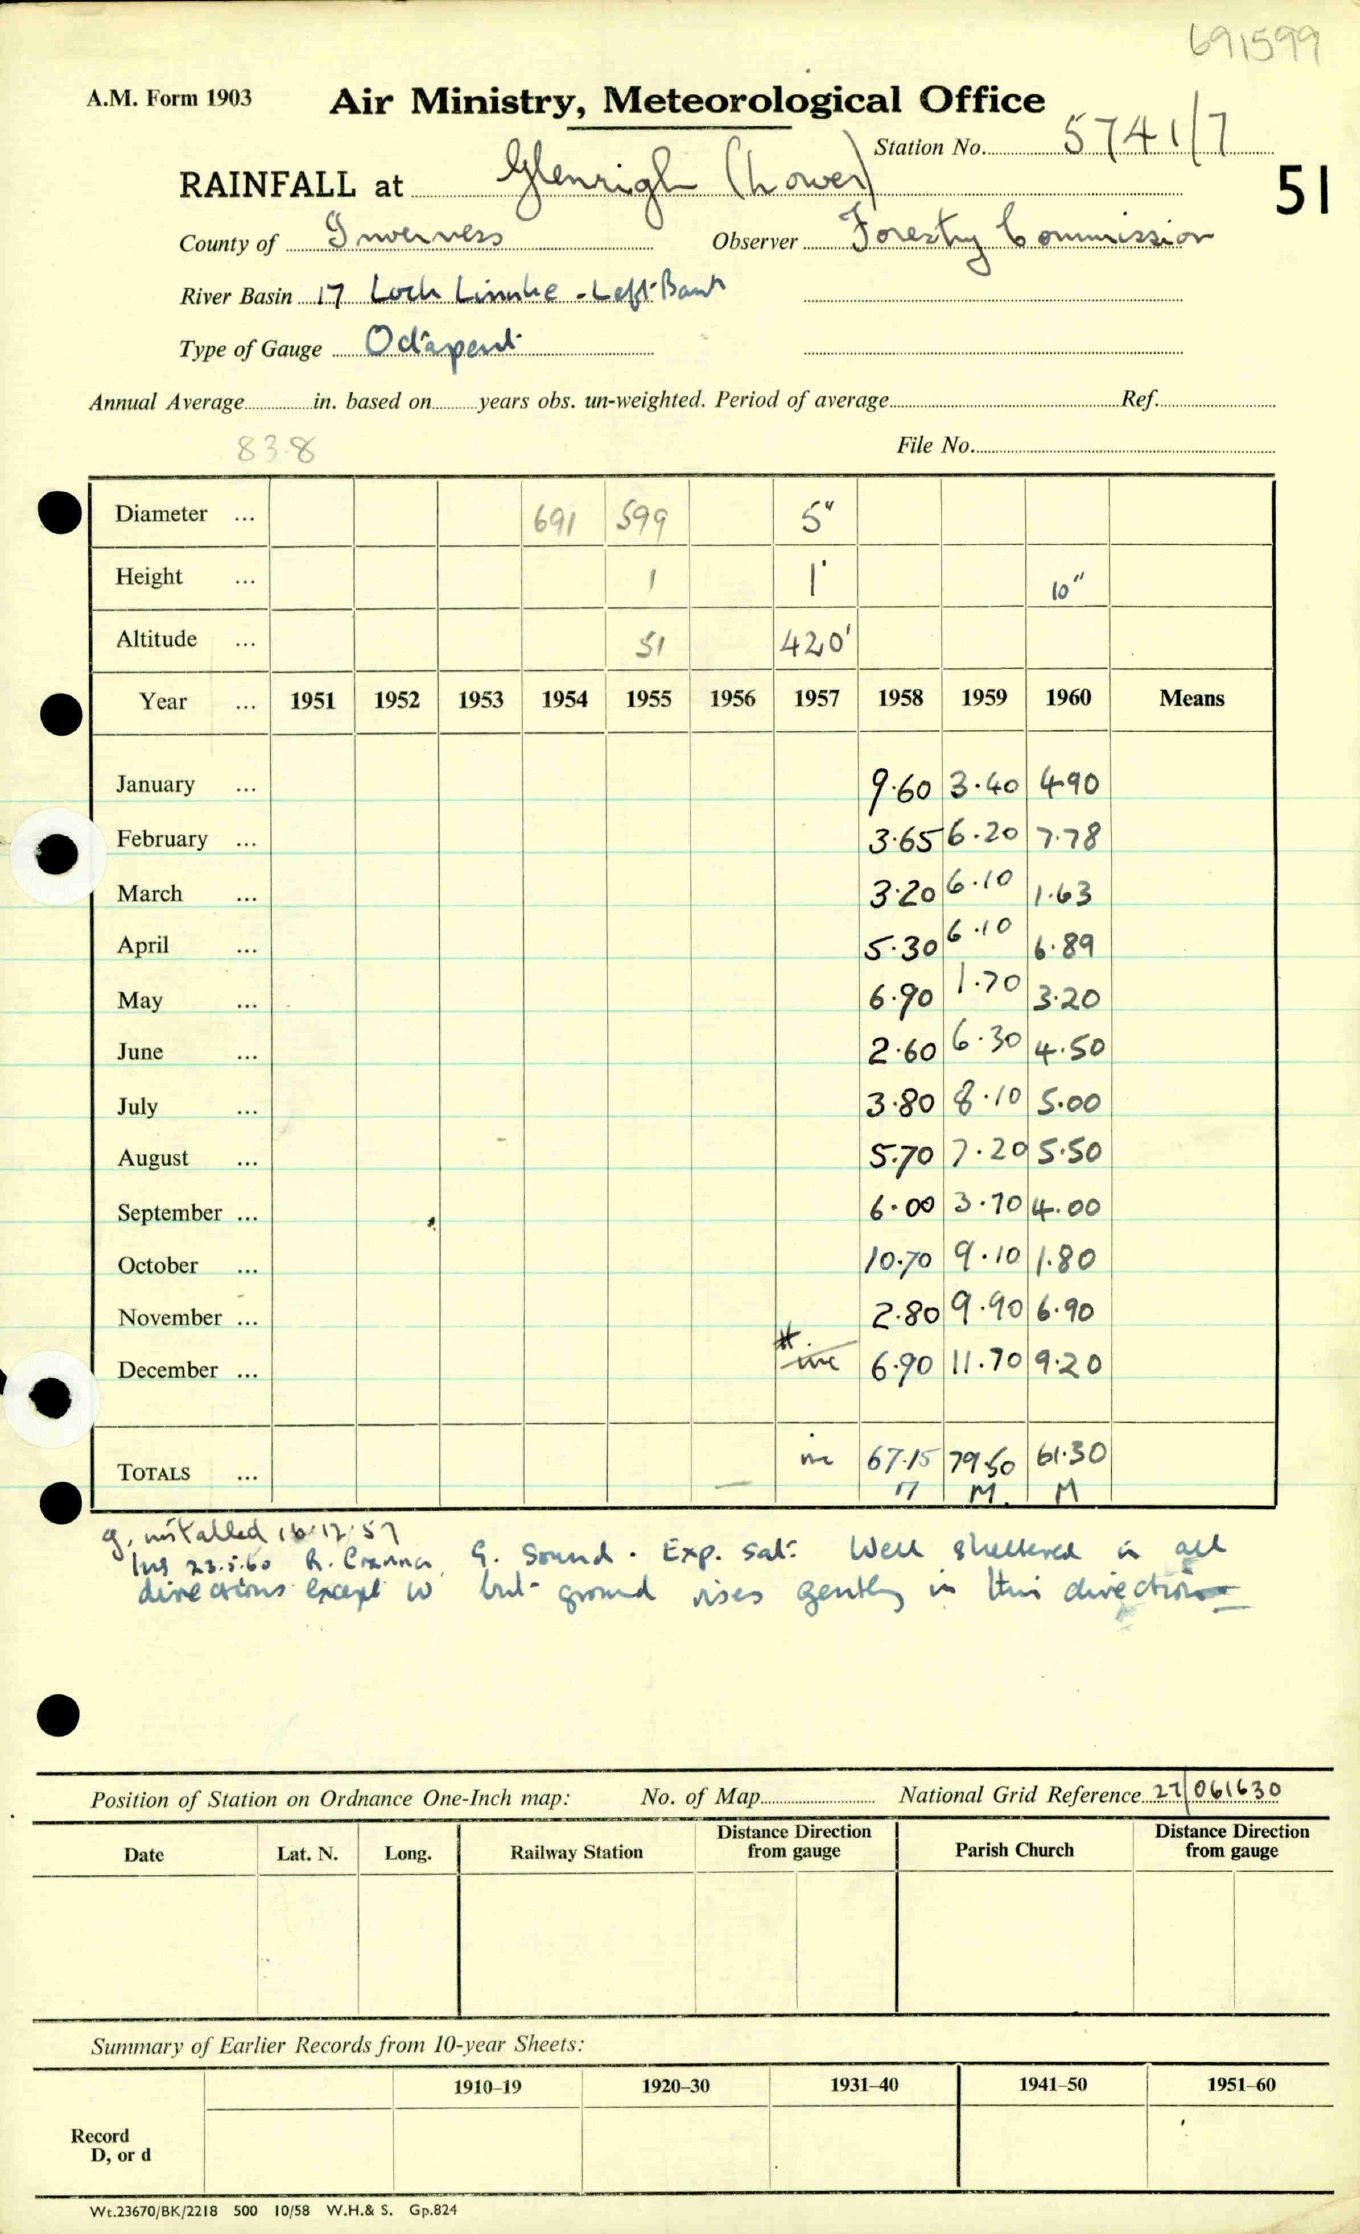 691599
A.M. Form 1903 Air Ministry, Meteorological Office
Station No. 5741/7
RAINFALL at Glenrigh (Lower) 51
County of Inverness Observer Forestry Commission
River Basin 17 Loch Linnhe - Left Bank
Type of Gauge Octapent
Annual Average in. based on years obs. un-weighted. Period of average Ref.
838 File No.
Diameter ... 691 599 5"
Height ... 1 1' 10"
Altitude ... 51 420'
Year ... 1951 1952 1953 1954 1955 1956 1957 1958 1959 1960 Means
January ... 9.60 3.40 4.90
February ... 3.65 6.20 7.78
March ... 3.20 6.10 1.63
April ... 5.30 6.10 6.89
May ... 6.90 1.70 3.20
June ... 2.60 6.30 4.50
July ... 3.80 8.10 5.00
August ... 5.70 7.20 5.50
September ... 6.00 3.70 4.00
October ... 10.70 9.10 1.80
November ... 2.80 9.90 6.90
December ... inc 6.90 11.70 9.20
TOTALS ... inc 67.15 79.50 61.30
M M. M
g. installed 16.12.57
Ins 23.5.60 R. G. Sound. Exp. sat. Well sheltered in all
directions except W but ground rises gently in this direction
Position of Station on Ordnance One-Inch map: No. of Map National Grid Reference 27/061630
Date Lat. N. Long. Railway Station Distance Direction from gauge Parish Church Distance Direction from gauge
Summary of Earlier Records from 10-year Sheets:
1910–19 1920–30 1931–40 1941–50 1951–60
Record
D, or d
Wt.23670/BK/2218 500 10/58 W.H.& S. Gp.824